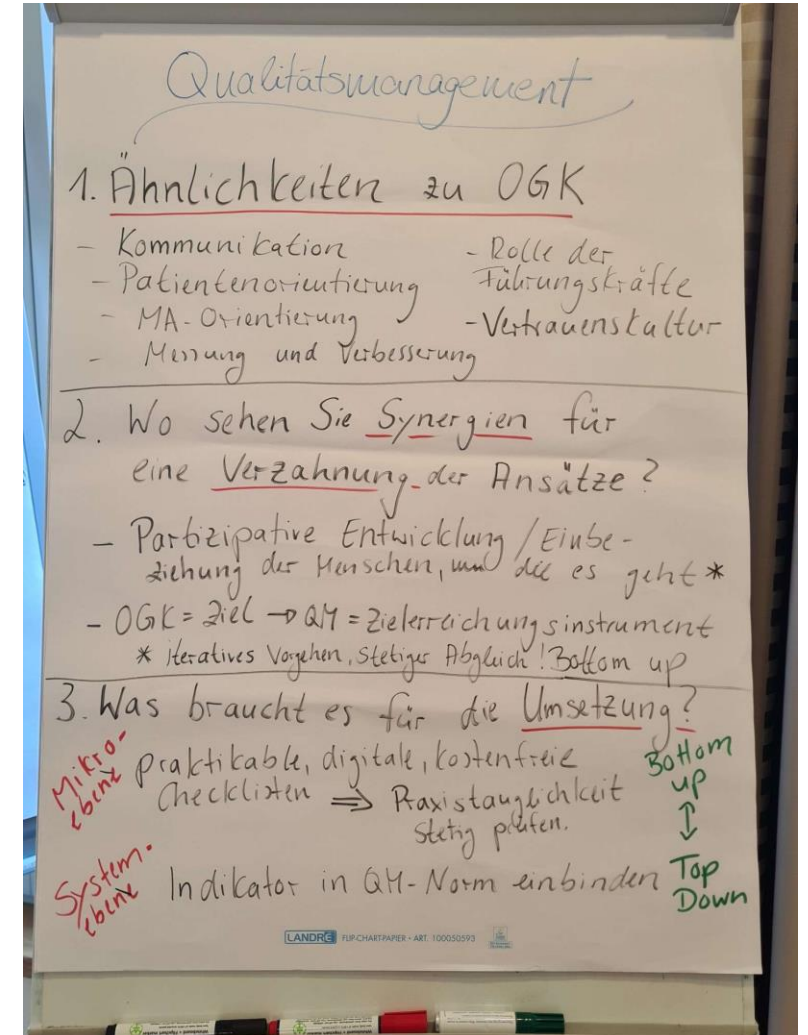 Qualitätsmanagement
1. Ähnlichkeiten zu OGK
- Kommunikation
- Patientenorientierung
- MA-Orientierung
- Messung und Verbesserung
- Rolle der
Führungskräfte
- Vertrauenskultur
2. Wo sehen Sie Synergien für
eine Verzahnung der Ansätze?
- Partizipative Entwicklung / Einbe-
ziehung der Menschen, um die es geht *
- OGK = Ziel → QM = Zielerreichungsinstrument
* iteratives Vorgehen, stetiger Abgleich! Bottom up
3. Was braucht es für die Umsetzung?
Mikro-
ebene
praktikable, digitale, kostenfreie
Checklisten ⇒ Praxistauglichkeit
stetig prüfen.
Bottom
up
↕
Top
Down
System-
ebene
Indikator in QM-Norm einbinden
LANDRÉ FLIP-CHART-PAPIER • ART. 100050593